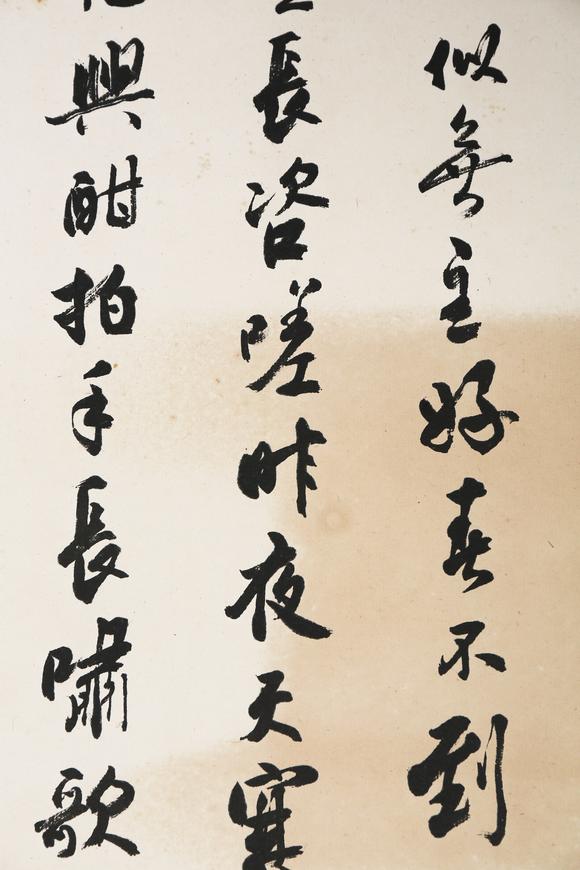 似無主好春不到
長咨嗟昨夜天寒
興酣拍手長嘯歌